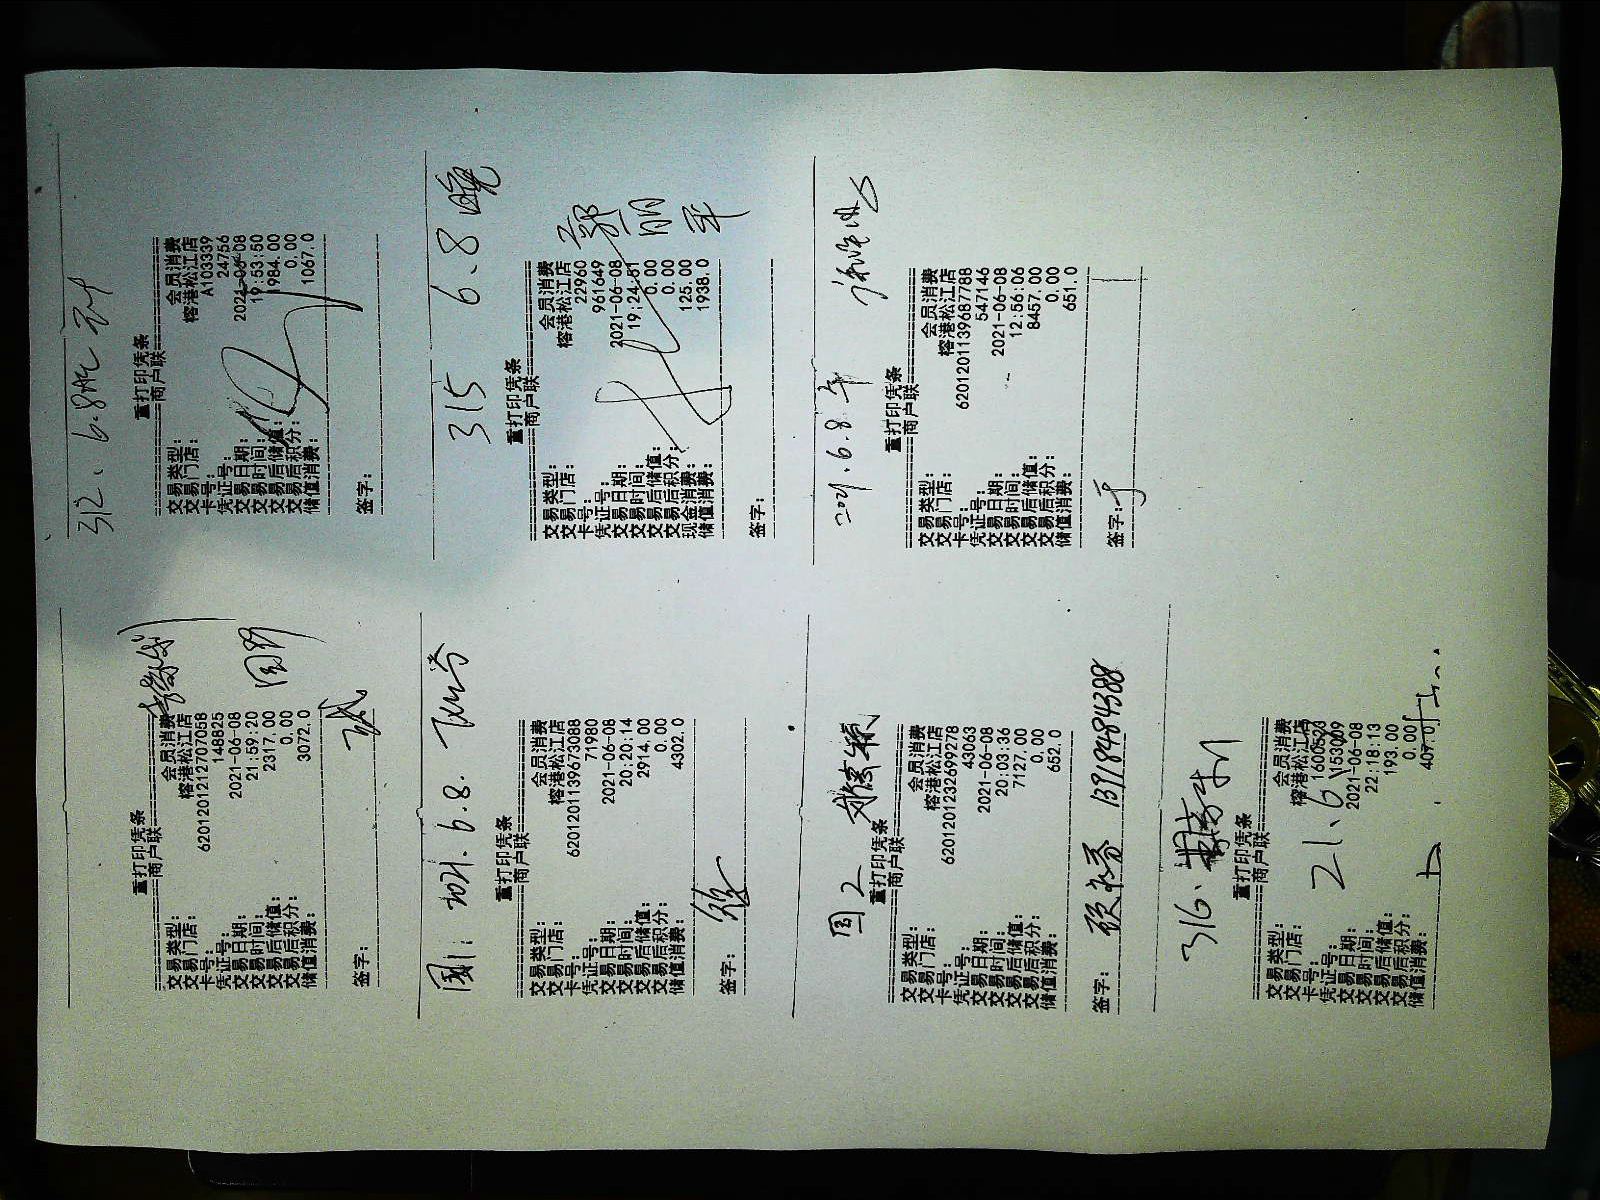 重打印凭条
商户联
交易类型: 会员消费
交易门店: 榕港松江店
卡号: 6201201212707058
凭证号: 148825
交易日期: 2021-06-08
交易时间: 21:59:20
交易后储值: 2317.00
交易后积分: 0.00
储值消费: 3072.0
签字:
312、6.8晚
重打印凭条
商户联
交易类型: 会员消费
交易门店: 榕港松江店
卡号: A103339
凭证号: 24756
交易日期: 2021-06-08
交易时间: 19:53:50
交易后储值: 1984.00
交易后积分: 0.00
储值消费: 1067.0
签字:
2021.6.8.
重打印凭条
商户联
交易类型: 会员消费
交易门店: 榕港松江店
卡号: 6201201139673088
凭证号: 71980
交易日期: 2021-06-08
交易时间: 20:20:14
交易后储值: 2914.00
交易后积分: 0.00
储值消费: 4302.0
签字:
315 6.8晚
重打印凭条
商户联
交易类型: 会员消费
交易门店: 榕港松江店
卡号: 22960
凭证号: 961649
交易日期: 2021-06-08
交易时间: 19:24:51
交易后储值: 0.00
交易后积分: 0.00
现金消费: 125.00
储值消费: 1938.0
签字:
国2
重打印凭条
商户联
交易类型: 会员消费
交易门店: 榕港松江店
卡号: 6201201232699278
凭证号: 43063
交易日期: 2021-06-08
交易时间: 20:03:36
交易后储值: 7127.00
交易后积分: 0.00
储值消费: 652.0
签字: 13918484388
2021.6.8.午
重打印凭条
商户联
交易类型: 会员消费
交易门店: 榕港松江店
卡号: 6201201139687788
凭证号: 547146
交易日期: 2021-06-08
交易时间: 12:56:06
交易后储值: 8457.00
交易后积分: 0.00
储值消费: 651.0
签字:
316.
重打印凭条
商户联
交易类型: 会员消费
交易门店: 榕港松江店
卡号:
凭证号: 153009
交易日期: 2021-06-08
交易时间: 22:18:13
交易后储值: 193.00
交易后积分: 0.00
储值消费:
21.6